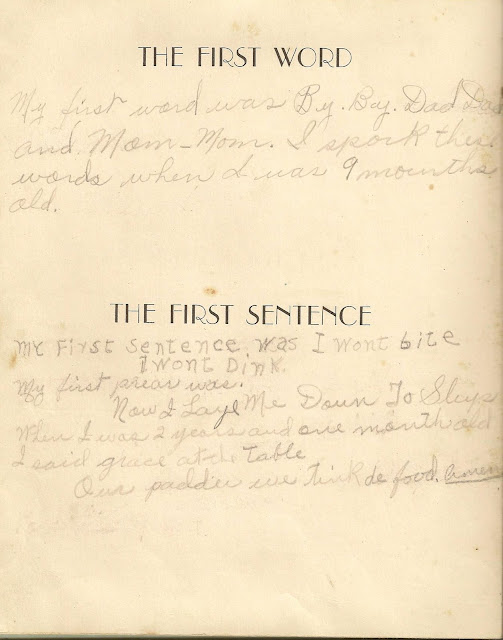 THE FIRST WORD
My first word was By. Bay. Dad Da
and Mom-Mom. I spork thes
words when I was 9 mounths
old.
THE FIRST SENTENCE
My First Sentence was I Wont bite
I Wont Dink.
My first prear was.
Now I Laye Me Doun To Sleps
When I was 2 years and one month old
I said grace at de Table
Our padder we Tink de food. Amen